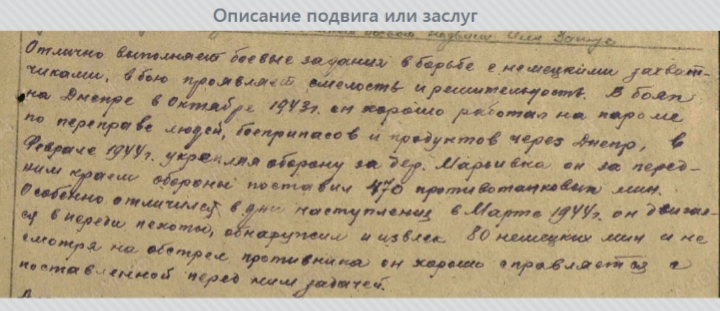 Описание подвига или заслуг
боевой подвиг или заслуг
Отлично выполняет боевые задания в борьбе с немецкими захват-
чиками, в бою проявляет смелость и решительность. В боях
на Днепре в Октябре 1943г. он хорошо работал на пароме
по переправе людей, боеприпасов и продуктов через Днепр, в
Феврале 1944г. укрепляя оборону за дер. Марьивка он за перед-
ним краем обороны поставил 470 противотанковых мин.
Особенно отличился в дни наступления в Марте 1944г. он двигал-
ся в переди пехоты, обнаружил и извлек 80 немецких мин и не
смотря на обстрел противника он хорошо справляется с
поставленной перед ним задачей.